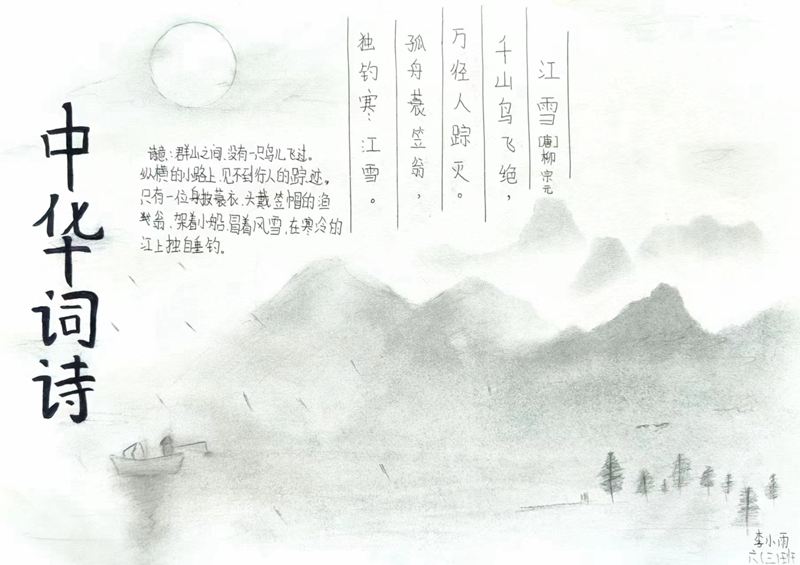 中华词诗
江雪 [唐]柳宗元
千山鸟飞绝，
万径人踪灭。
孤舟蓑笠翁，
独钓寒江雪。
诗意：群山之间，没有一只鸟儿飞过。
纵横的小路上，见不到行人的踪迹，
只有一位身披蓑衣、头戴笠帽的渔
翁、架着小船，冒着风雪，在寒冷的
江上独自垂钓。
李小雨
六(三)班